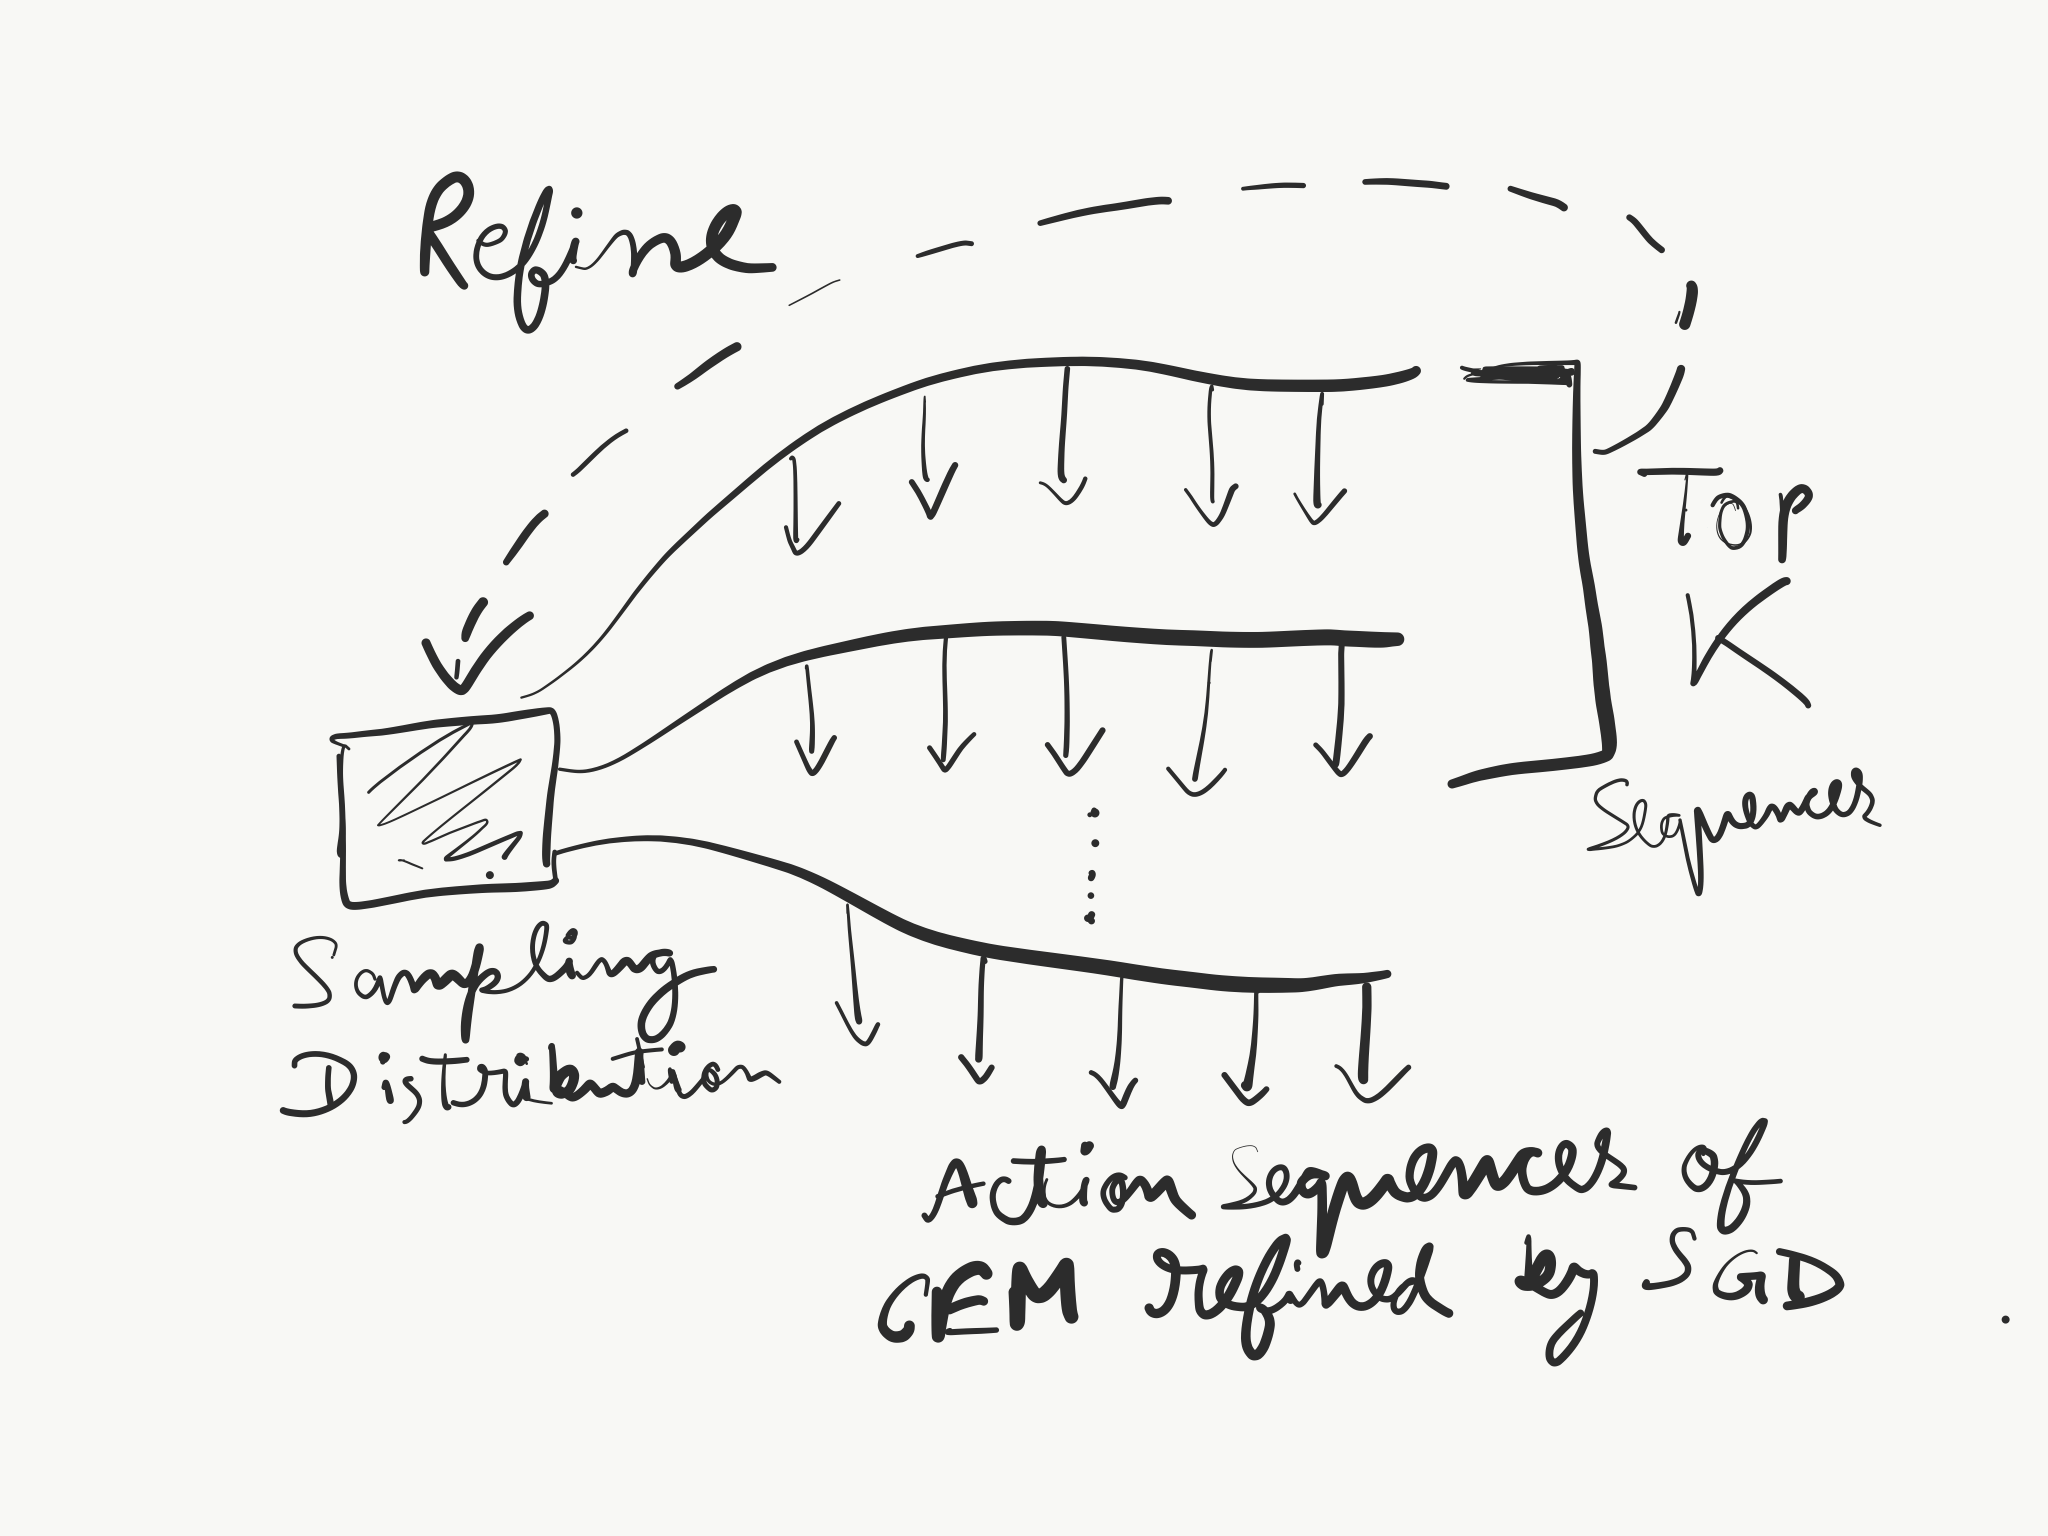 Refine
Top
K
Sequences
Sampling
Distribution
Action Sequences of
CEM refined by SGD